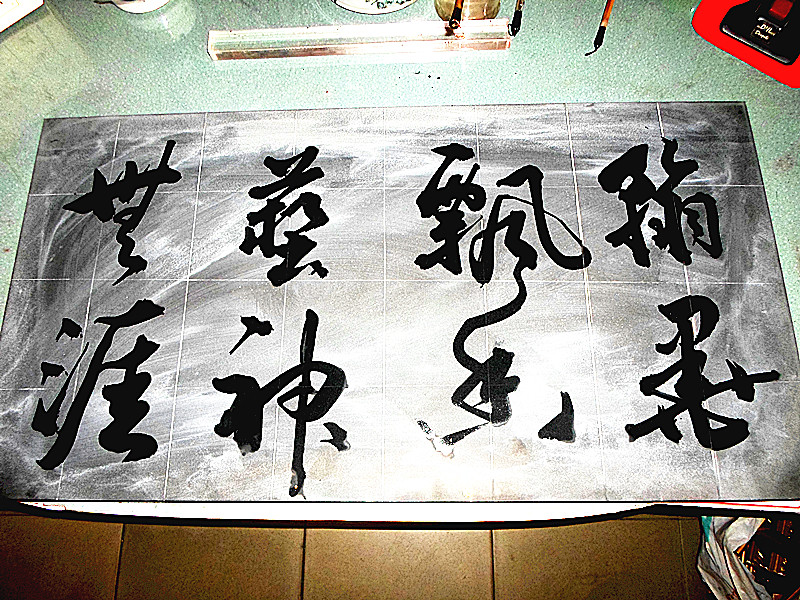 翰墨
飄香
藝神
無涯